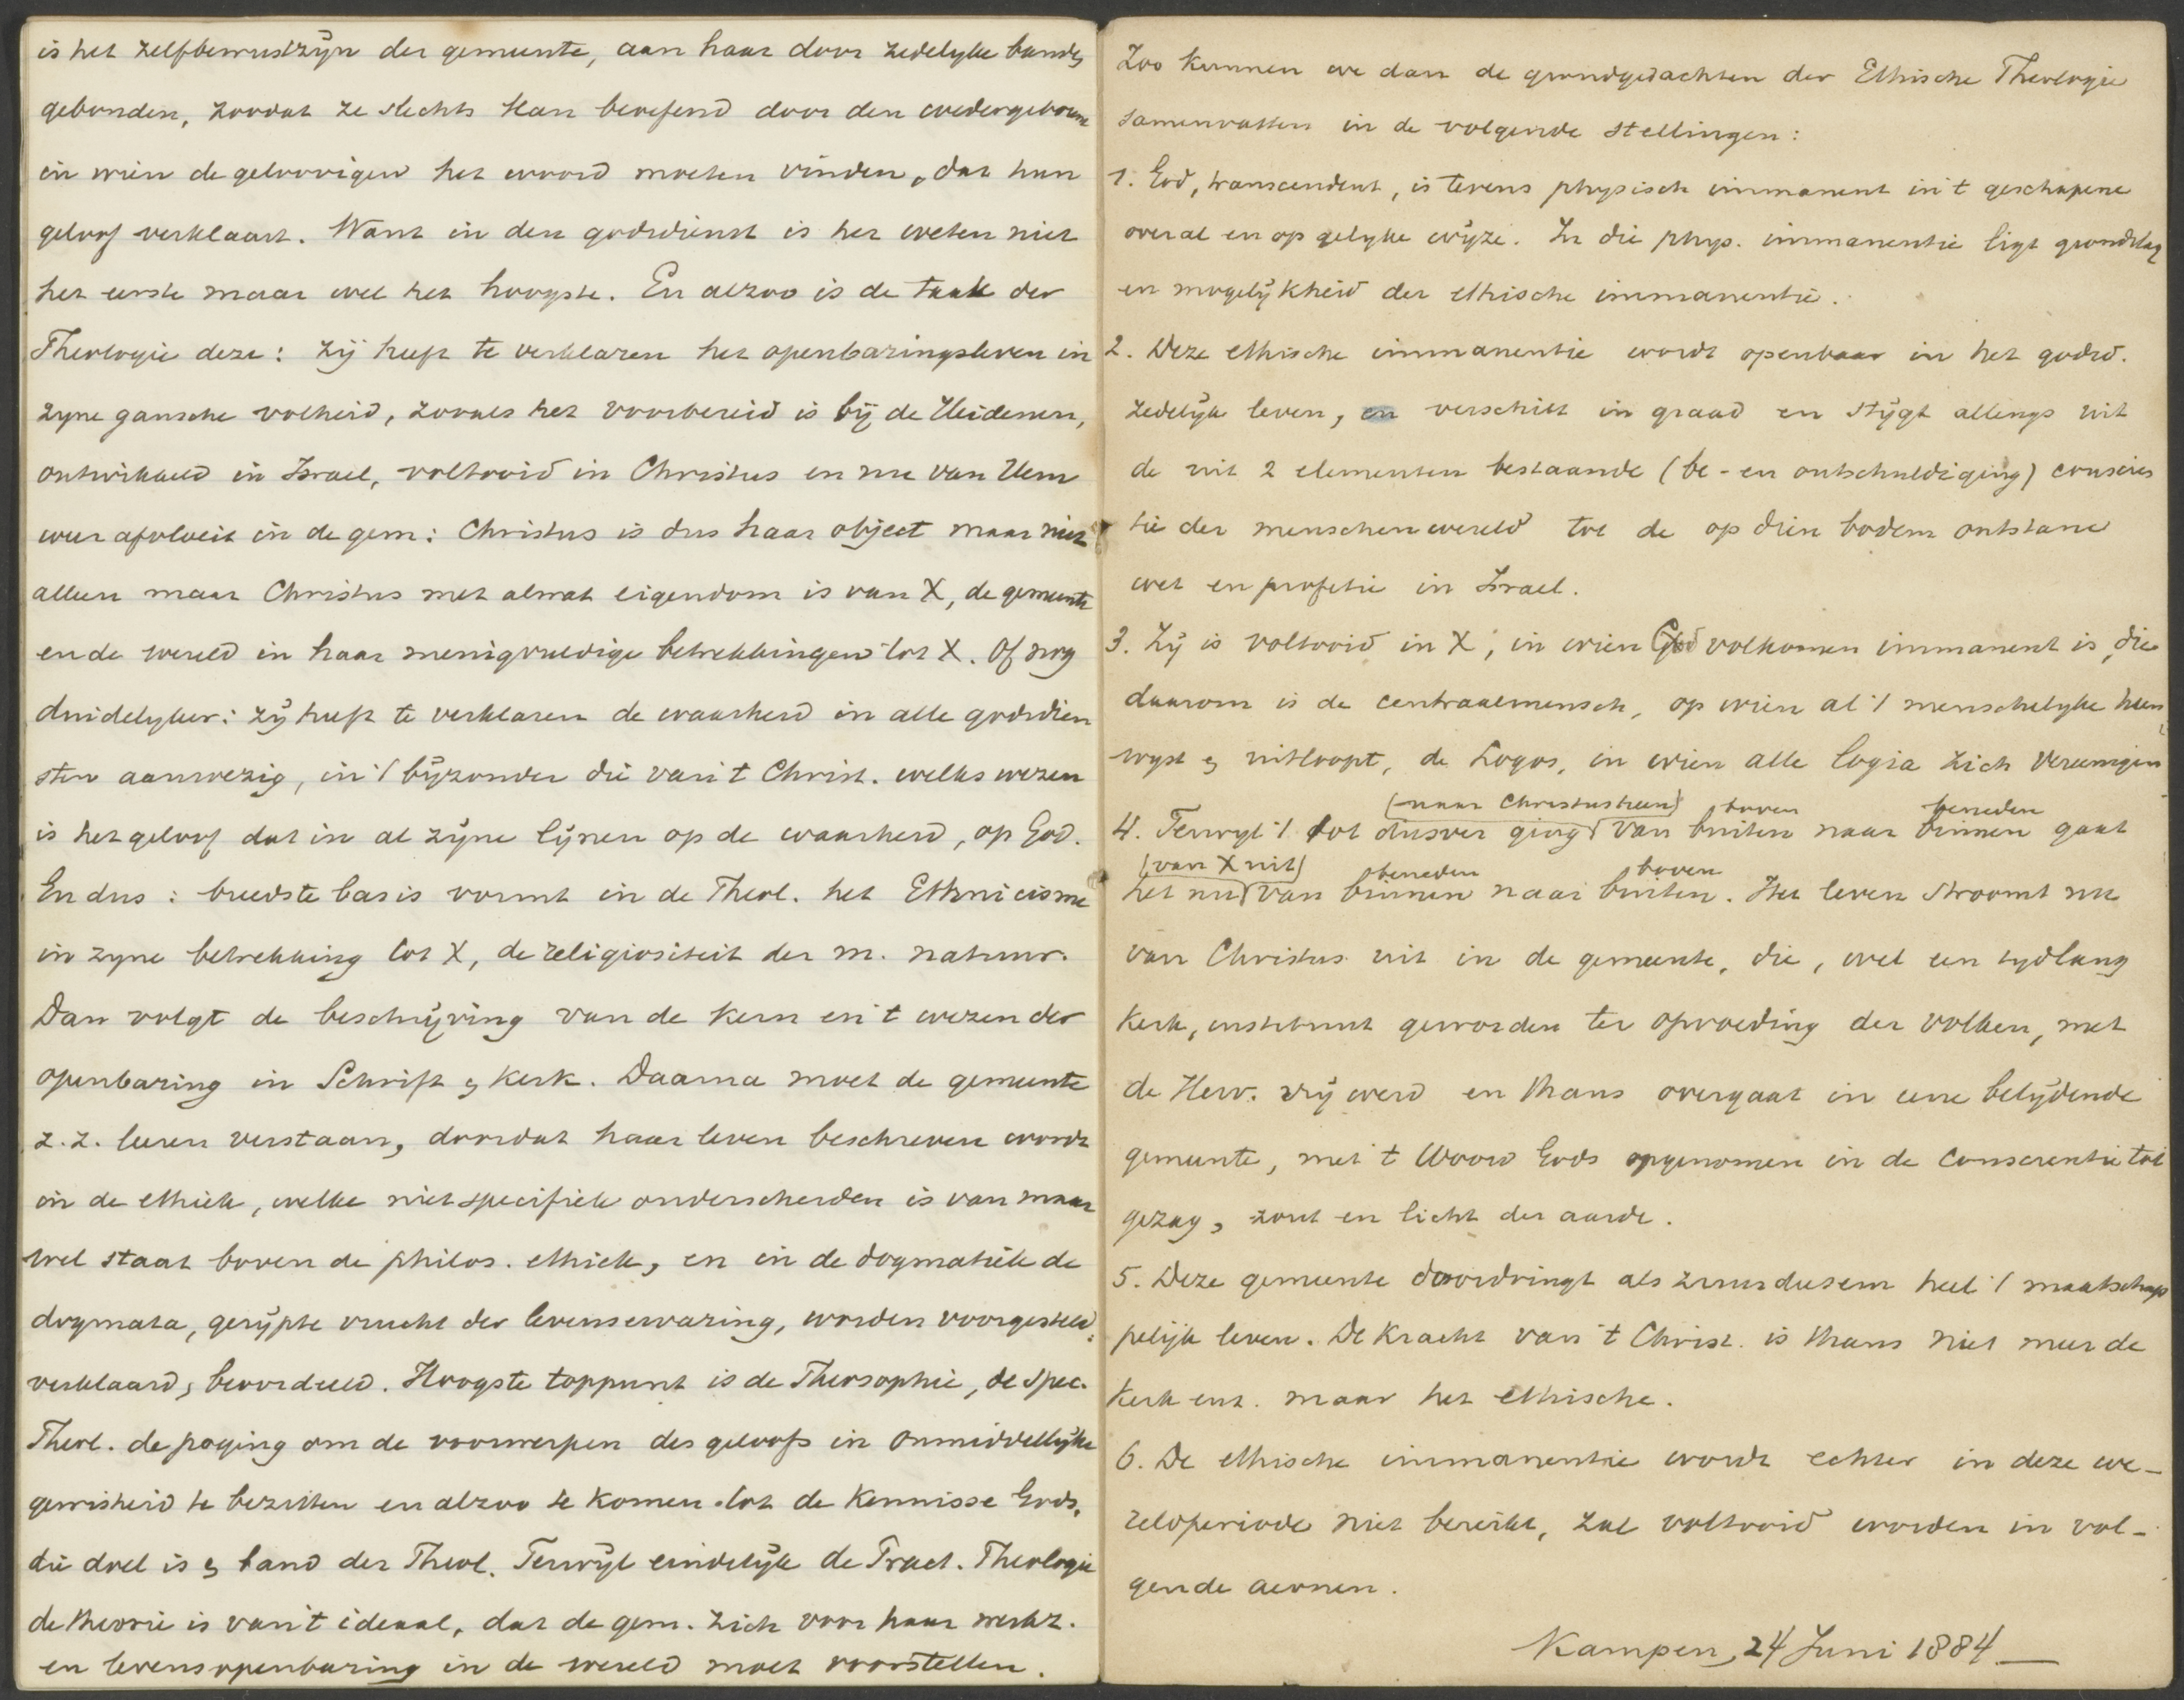 is het zelfbewustzijn der gemeente, aan haar door zedelyke banden
gebonden, zoodat ze slechts kan beoefend door den wedergeborene
in wien de geloovigen het woord moeten vinden, dat hun
geloof verklaart. Want in den godsdienst is het weten niet
het eerste maar wel het hoogste. En alzoo is de taak der
Theologie deze: zij heeft te verklaren het openbaringsleven in
zyne gansche volheid, zooals het voorbereid is bij de Heidenen,
ontwikkeld in Israel, voltooid in Christus en nu van Hem
weer afvloeit in de gem: Christus is dus haar object maar niet
alleen maar Christus met alwat eigendom is van X, de gemeente
en de wereld in haar menigvuldige betrekkingen tot X. Of nog
duidelyker: zij heeft te verklaren de waarheid in alle godsdien
sten aanwezig, in 't byzonder die van 't Christ. welks wezen
is het geloof dat in al zijne lijnen op de waarheid, op God.
En dus: breedste basis vormt in de Theol. het Ethnicisme
in zyne betrekking tot X, de religiositeit der m. natuur.
Dan volgt de beschrijving van de kern en 't wezen der
openbaring in Schrift & kerk. Daarna moet de gemeente
z.z. leeren verstaan, doordat haar leven beschreven wordt
in de ethiek, welke niet specifiek onderscheiden is van maar
wel staat boven de philos. ethiek, en in de dogmatiek de
dogmata, gerijpte vrucht der levenservaring, worden voorgesteld,
verklaard, beoordeeld. Hoogste toppunt is de Theosophie, de spec.
Theol. de poging om de voorwerpen des geloofs in onmiddellijke
gewisheid te bezitten en alzoo te komen tot de Kennisse Gods,
die doel is & band der Theol. Terwijl eindelijk de Pract. Theologie
de theorie is van 't ideaal, dat de gem. zich voor haar werkz.
en levensopenbaring in de wereld moet voorstellen.
Zoo kunnen we dan de grondgedachten der Ethische Theologie
samenvatten in de volgende stellingen:
1. God, transcendent, is tevens physisch immanent in 't geschapene
overal en op gelyke wijze. In die phys. immanentie ligt grondslag
en mogelijkheid der ethische immanentie.
2. Deze ethische immanentie wordt openbaar in het godsd.
zedelijk leven, en verschilt in graad en stijgt allengs uit
de uit 2 elementen bestaande (be- en ontschuldiging) conscien
tie der menschenwereld tot de op dien bodem ontstane
wet en profetie in Israel.
3. Zij is voltooid in X, in wien God volkomen immanent is, die
daarom is de centraalmensch, op wien al 't menschelyke heen
wyst & uitloopt, de Logos, in wien alle logia zich vereenigen
(naar Christus heen) boven beneden
4. Terwyl 't tot dusver ging van buiten naar binnen gaat
(van X uit) beneden boven
het nu van binnen naar buiten. Het leven stroomt nu
van Christus uit in de gemeente, die, wel een tydlang
kerk, instituut geworden ter opvoeding der volken, met
de Herv. vrij werd en thans overgaat in eene belijdende
gemeente, met 't Woord Gods opgenomen in de conscientie tot
gezag, zout en licht der aarde.
5. Deze gemeente doordringt als zuurdeesem heel 't maatschap
pelijk leven. De kracht van 't Christ. is thans niet meer de
kerk enz. maar het ethische.
6. De ethische immanentie wordt echter in deze we-
reldperiode niet bereikt, zal voltooid worden in vol-
gende aeonen.
Kampen, 24 Juni 1884